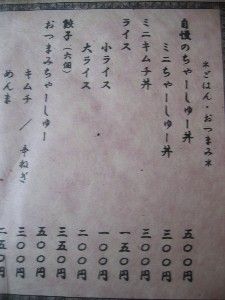 *ごはん・おつまみ*
自慢のちゃーしゅー丼 五〇〇円
ミニちゃーしゅー丼 三〇〇円
ミニキムチ丼 三〇〇円
ライス 一五〇円
小ライス 一〇〇円
大ライス 二〇〇円
餃子(六個) 三五〇円
おつまみちゃーしゅー 五〇〇円
キムチ / 辛ねぎ 三〇〇円
めんま 二五〇円